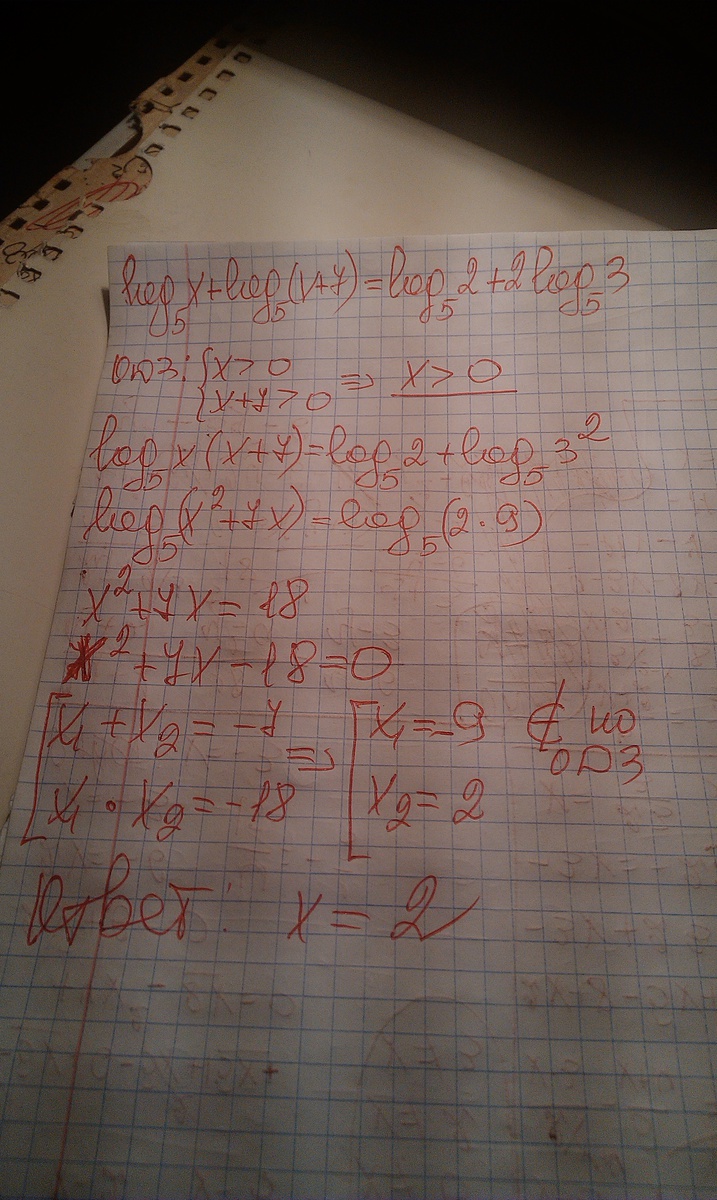 log₅x+log₅(x+7)=log₅2+2log₅3
ОДЗ: {x>0 ⇒ x>0
{x+7>0
log₅x(x+7)=log₅2+log₅3²
log₅(x²+7x)=log₅(2·9)
x²+7x=18
x²+7x-18=0
[x₁+x₂=-7 ⇒ [x₁=-9 ∉ по ОДЗ
x₁·x₂=-18 x₂=2
Ответ: x=2